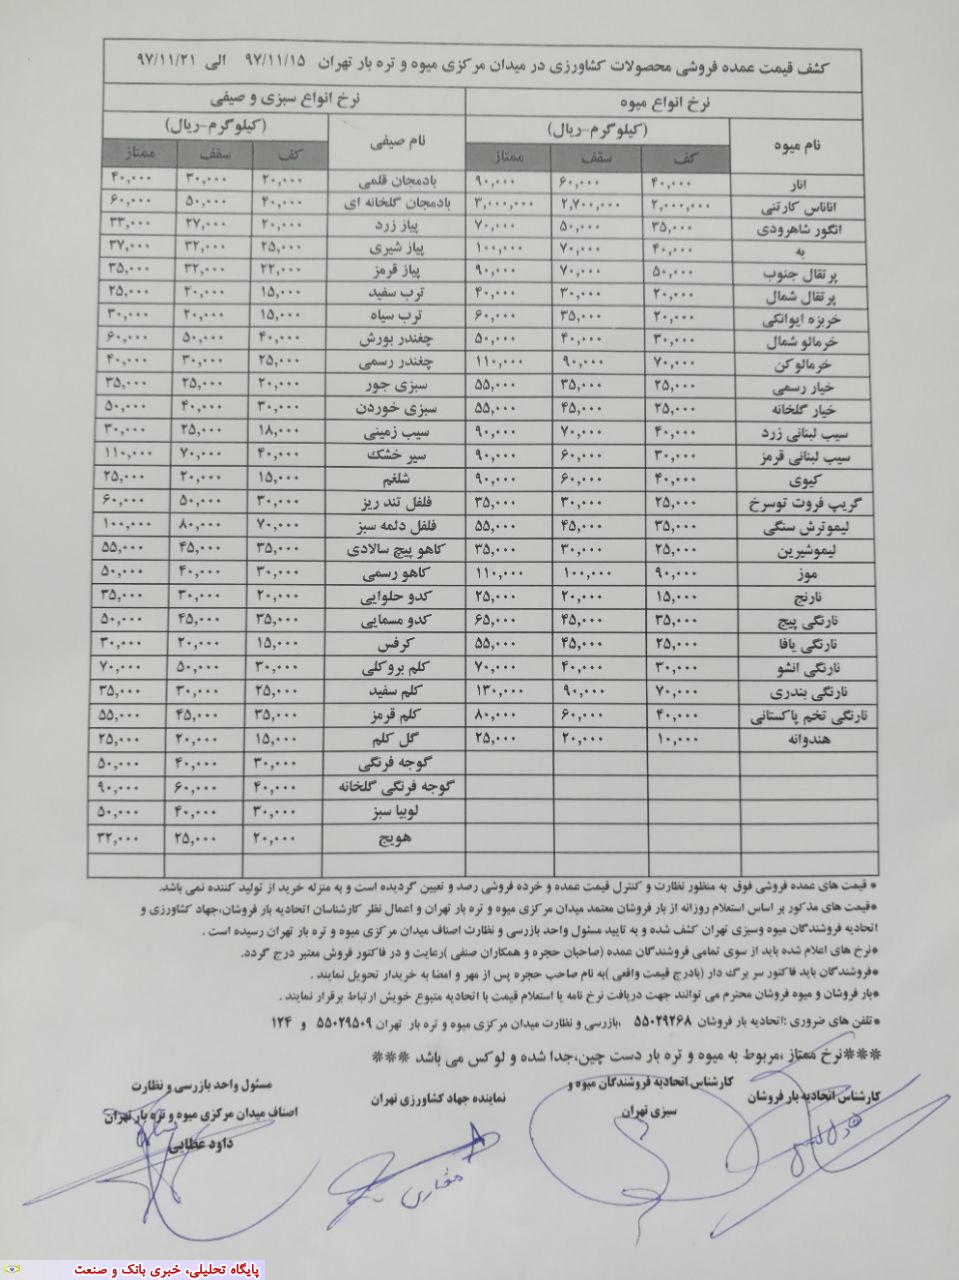 کشف قیمت عمده فروشی محصولات کشاورزی در میدان مرکزی میوه و تره بار تهران ۹۷/۱۱/۱۵ الی ۹۷/۱۱/۲۱
نرخ انواع میوه نرخ انواع سبزی و صیفی
نام میوه (کیلوگرم-ریال) نام صیفی (کیلوگرم-ریال)
کف سقف ممتاز کف سقف ممتاز
انار ۴۰,۰۰۰ ۶۰,۰۰۰ ۹۰,۰۰۰ بادمجان قلمی ۲۰,۰۰۰ ۳۰,۰۰۰ ۴۰,۰۰۰
اناناس کارتنی ۲,۰۰۰,۰۰۰ ۲,۷۰۰,۰۰۰ ۳,۰۰۰,۰۰۰ بادمجان گلخانه ای ۴۰,۰۰۰ ۵۰,۰۰۰ ۶۰,۰۰۰
انگور شاهرودی ۳۵,۰۰۰ ۵۰,۰۰۰ ۷۰,۰۰۰ پیاز زرد ۲۰,۰۰۰ ۲۷,۰۰۰ ۳۳,۰۰۰
به ۴۰,۰۰۰ ۷۰,۰۰۰ ۱۰۰,۰۰۰ پیاز شیری ۲۵,۰۰۰ ۳۲,۰۰۰ ۳۷,۰۰۰
پرتقال جنوب ۵۰,۰۰۰ ۷۰,۰۰۰ ۹۰,۰۰۰ پیاز قرمز ۲۲,۰۰۰ ۳۲,۰۰۰ ۳۵,۰۰۰
پرتقال شمال ۲۰,۰۰۰ ۳۰,۰۰۰ ۴۰,۰۰۰ ترب سفید ۱۵,۰۰۰ ۲۰,۰۰۰ ۲۵,۰۰۰
خربزه ایوانکی ۲۰,۰۰۰ ۳۵,۰۰۰ ۶۰,۰۰۰ ترب سیاه ۱۵,۰۰۰ ۲۰,۰۰۰ ۳۰,۰۰۰
خرمالو شمال ۳۰,۰۰۰ ۴۰,۰۰۰ ۵۰,۰۰۰ چغندر بورش ۴۰,۰۰۰ ۵۰,۰۰۰ ۶۰,۰۰۰
خرمالوکن ۷۰,۰۰۰ ۹۰,۰۰۰ ۱۱۰,۰۰۰ چغندر رسمی ۲۵,۰۰۰ ۳۰,۰۰۰ ۴۰,۰۰۰
خیار رسمی ۲۵,۰۰۰ ۳۵,۰۰۰ ۵۵,۰۰۰ سبزی جور ۲۰,۰۰۰ ۲۵,۰۰۰ ۳۵,۰۰۰
خیار گلخانه ۲۵,۰۰۰ ۴۵,۰۰۰ ۵۵,۰۰۰ سبزی خوردن ۳۰,۰۰۰ ۴۰,۰۰۰ ۵۰,۰۰۰
سیب لبنانی زرد ۴۰,۰۰۰ ۷۰,۰۰۰ ۹۰,۰۰۰ سیب زمینی ۱۸,۰۰۰ ۲۵,۰۰۰ ۳۰,۰۰۰
سیب لبنانی قرمز ۳۰,۰۰۰ ۶۰,۰۰۰ ۹۰,۰۰۰ سیر خشک ۴۰,۰۰۰ ۷۰,۰۰۰ ۱۱۰,۰۰۰
کیوی ۴۰,۰۰۰ ۶۰,۰۰۰ ۹۰,۰۰۰ شلغم ۱۵,۰۰۰ ۲۰,۰۰۰ ۲۵,۰۰۰
گریپ فروت توسرخ ۲۵,۰۰۰ ۳۰,۰۰۰ ۳۵,۰۰۰ فلفل تند ریز ۳۰,۰۰۰ ۵۰,۰۰۰ ۶۰,۰۰۰
لیموترش سنگی ۳۵,۰۰۰ ۴۵,۰۰۰ ۵۵,۰۰۰ فلفل دلمه سبز ۷۰,۰۰۰ ۸۰,۰۰۰ ۱۰۰,۰۰۰
لیموشیرین ۲۵,۰۰۰ ۳۰,۰۰۰ ۳۵,۰۰۰ کاهو پیچ سالادی ۳۵,۰۰۰ ۴۵,۰۰۰ ۵۵,۰۰۰
موز ۹۰,۰۰۰ ۱۰۰,۰۰۰ ۱۱۰,۰۰۰ کاهو رسمی ۳۰,۰۰۰ ۴۰,۰۰۰ ۵۰,۰۰۰
نارنج ۱۵,۰۰۰ ۲۰,۰۰۰ ۲۵,۰۰۰ کدو حلوایی ۲۰,۰۰۰ ۳۰,۰۰۰ ۳۵,۰۰۰
نارنگی پیج ۳۵,۰۰۰ ۴۵,۰۰۰ ۶۵,۰۰۰ کدو مسمایی ۳۵,۰۰۰ ۴۵,۰۰۰ ۵۰,۰۰۰
نارنگی یافا ۲۵,۰۰۰ ۴۵,۰۰۰ ۵۵,۰۰۰ کرفس ۱۵,۰۰۰ ۲۰,۰۰۰ ۳۰,۰۰۰
نارنگی انشو ۳۰,۰۰۰ ۴۰,۰۰۰ ۷۰,۰۰۰ کلم بروکلی ۳۰,۰۰۰ ۵۰,۰۰۰ ۷۰,۰۰۰
نارنگی بندری ۷۰,۰۰۰ ۹۰,۰۰۰ ۱۳۰,۰۰۰ کلم سفید ۲۵,۰۰۰ ۳۰,۰۰۰ ۳۵,۰۰۰
نارنگی تخم پاکستانی ۴۰,۰۰۰ ۶۰,۰۰۰ ۸۰,۰۰۰ کلم قرمز ۳۵,۰۰۰ ۴۵,۰۰۰ ۵۵,۰۰۰
هندوانه ۱۰,۰۰۰ ۲۰,۰۰۰ ۲۵,۰۰۰ گل کلم ۱۵,۰۰۰ ۲۰,۰۰۰ ۲۵,۰۰۰
گوجه فرنگی ۳۰,۰۰۰ ۴۰,۰۰۰ ۵۰,۰۰۰
گوجه فرنگی گلخانه ۴۰,۰۰۰ ۶۰,۰۰۰ ۹۰,۰۰۰
لوبیا سبز ۳۰,۰۰۰ ۴۰,۰۰۰ ۵۰,۰۰۰
هویج ۲۰,۰۰۰ ۲۵,۰۰۰ ۳۲,۰۰۰
* قیمت های عمده فروشی فوق به منظور نظارت و کنترل قیمت عمده و خرده فروشی رصد و تعیین گردیده است و به منزله خرید از تولید کننده نمی باشد.
*قیمت های مذکور بر اساس استعلام روزانه از بار فروشان معتمد میدان مرکزی میوه و تره بار تهران و اعمال نظر کارشناسان اتحادیه بار فروشان،جهاد کشاورزی و
اتحادیه فروشندگان میوه وسبزی تهران کشف شده و به تایید مسئول واحد بازرسی و نظارت اصناف میدان مرکزی میوه و تره بار تهران رسیده است .
*نرخ های اعلام شده باید از سوی تمامی فروشندگان عمده (صاحبان حجره و همکاران صنفی )رعایت و در فاکتور فروش معتبر درج گردد.
*فروشندگان باید فاکتور سر برگ دار (بادرج قیمت واقعی )به نام صاحب حجره پس از مهر و امضا به خریدار تحویل نمایند .
*بار فروشان و میوه فروشان محترم می توانند جهت دریافت نرخ نامه یا استعلام قیمت با اتحادیه متبوع خویش ارتباط برقرار نمایند .
*تلفن های ضروری :اتحادیه بار فروشان ۵۵۰۲۹۲۶۸ ،بازرسی و نظارت میدان مرکزی میوه و تره بار تهران ۵۵۰۲۹۵۰۹ و ۱۲۴
***نرخ ممتاز ،مربوط به میوه و تره بار دست چین،جدا شده و لوکس می باشد ***
کارشناس اتحادیه بار فروشان
کارشناس اتحادیه فروشندگان میوه و
سبزی تهران
نماینده جهاد کشاورزی تهران
مسئول واحد بازرسی و نظارت
اصناف میدان مرکزی میوه و تره بار تهران
داود عطایی
پایگاه تحلیلی، خبری بانک و صنعت